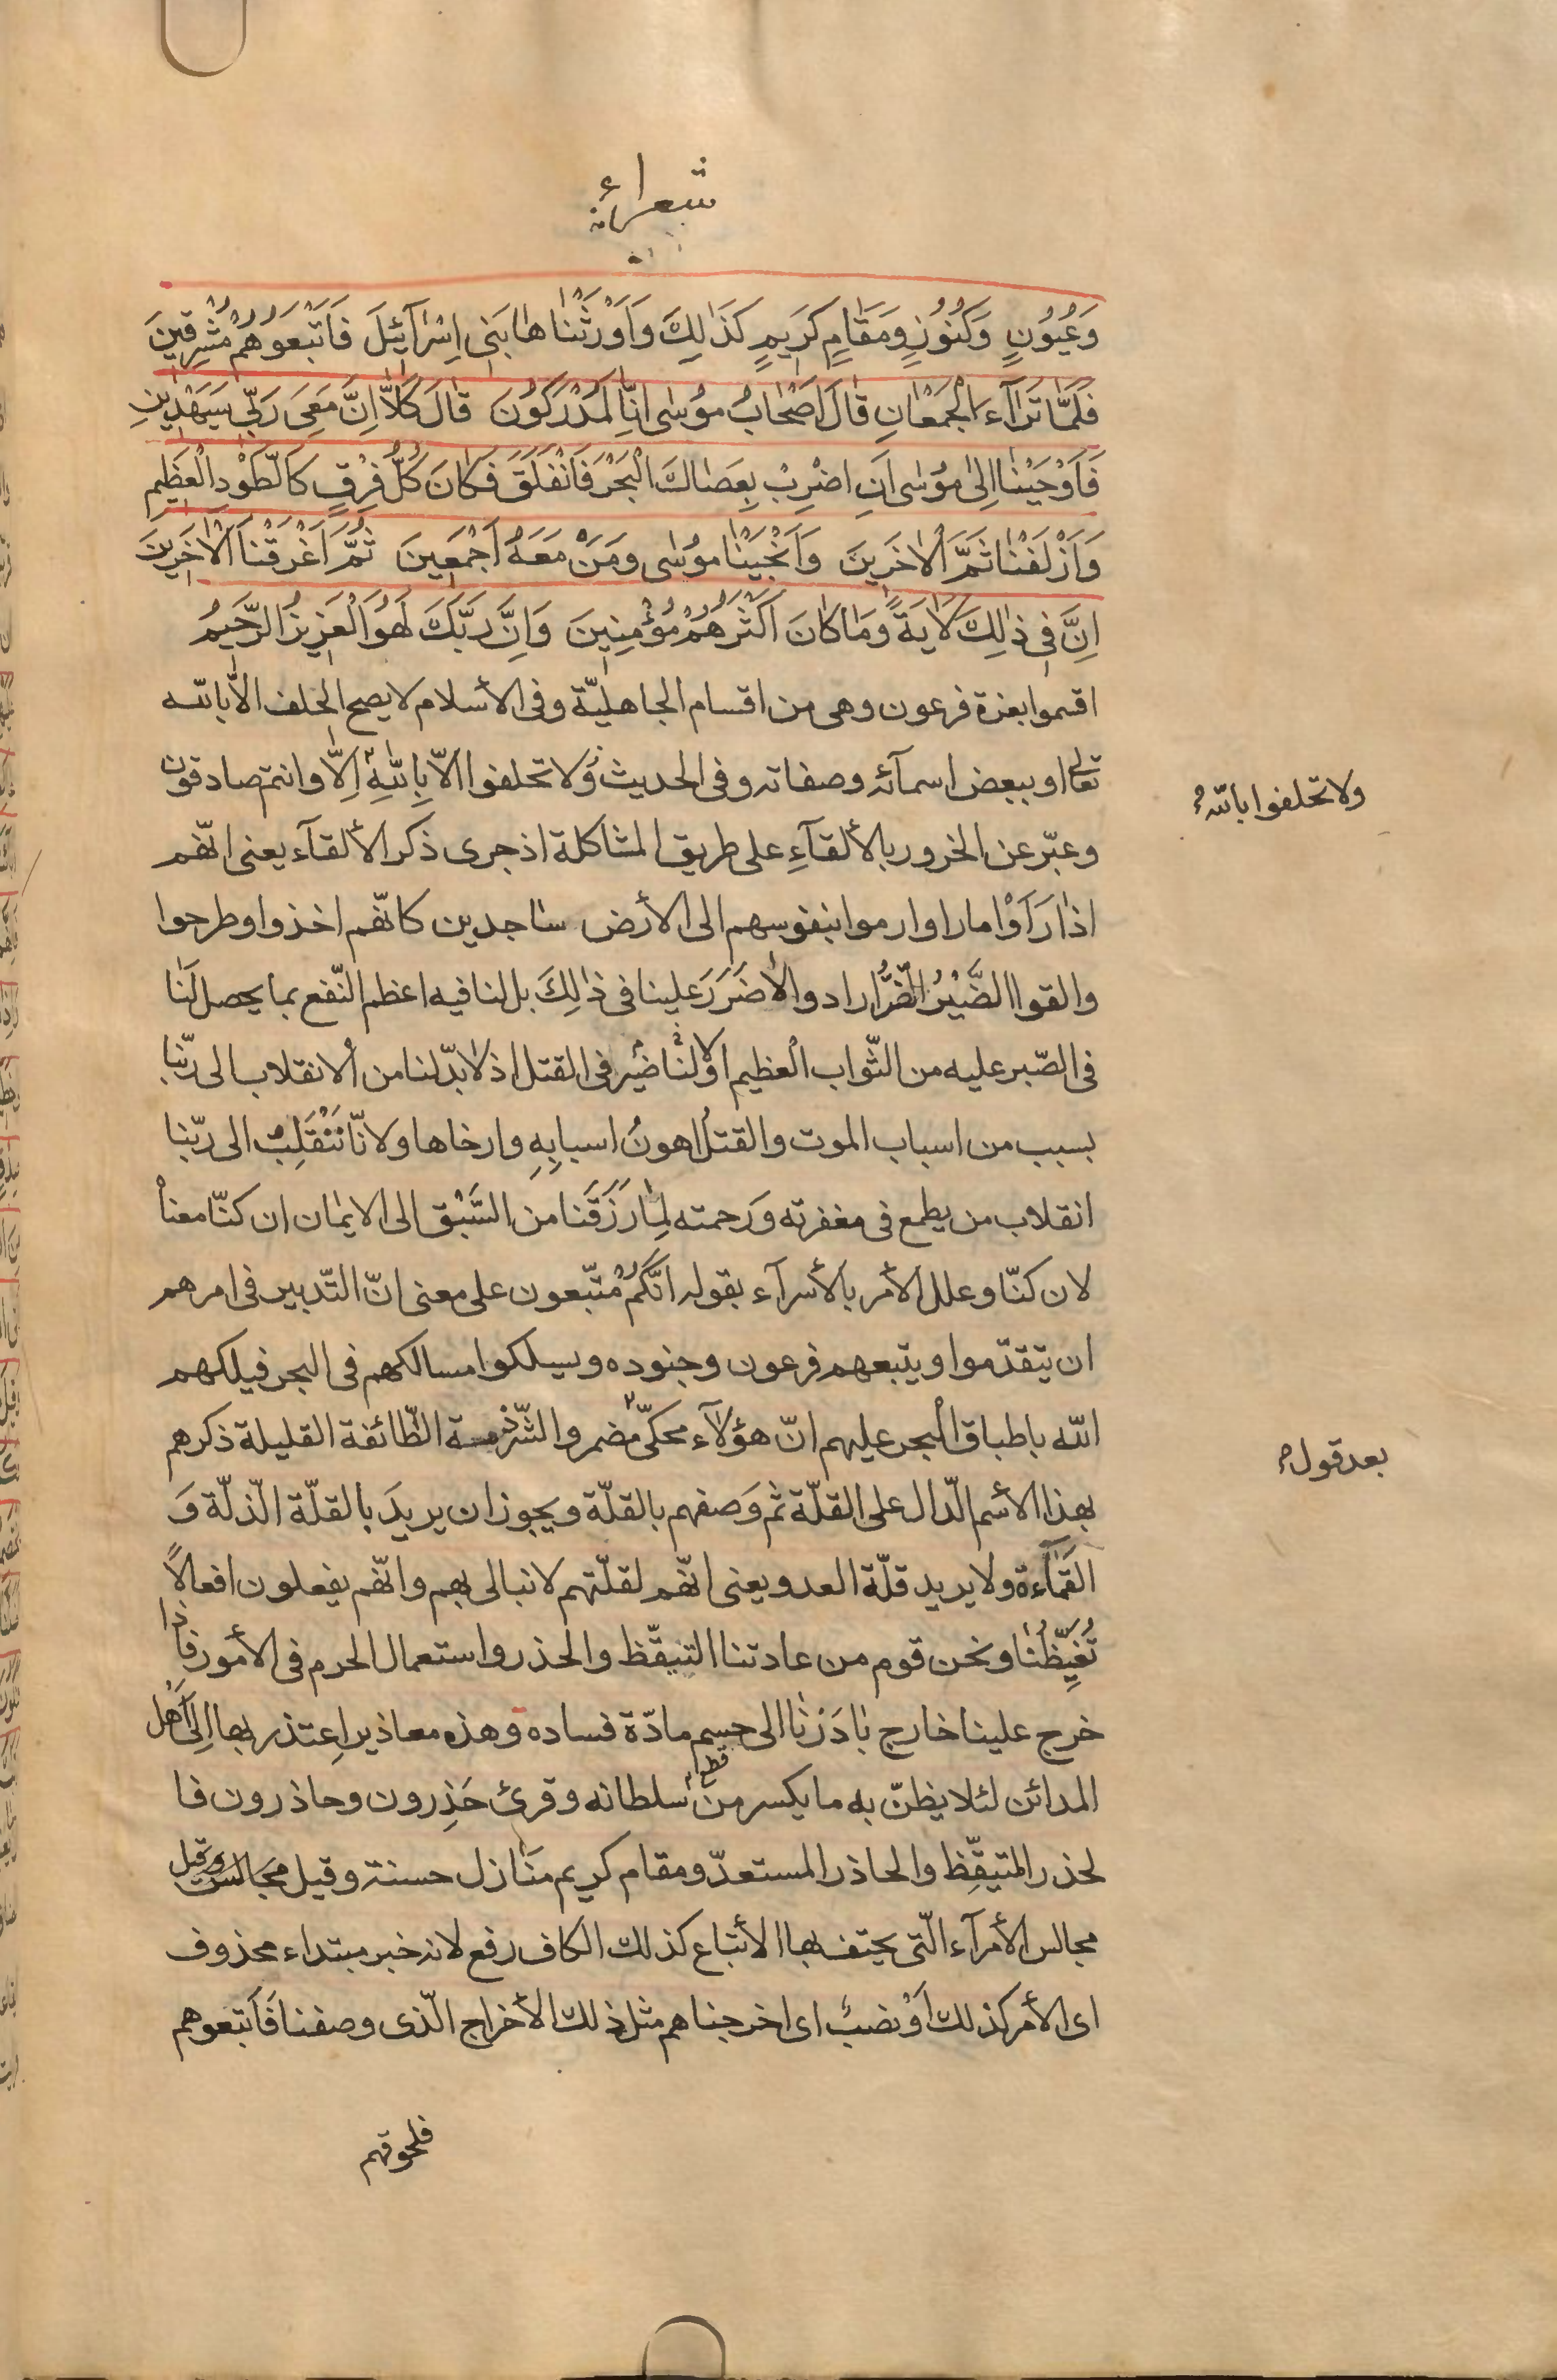 شعراء
وَعُيُونٍ وَكُنُوزٍ وَمَقَامٍ كَرِيمٍ كَذٰلِكَ وَاَوْرَثْنٰاهٰا بَنِي اِسْرٰآئِلَ فَاَتْبَعُوهُمْ مُشْرِقِينَ
فَلَمّٰا تَرٰآءَ الْجَمْعٰانِ قٰالَ اَصْحٰابُ مُوسٰى اِنّٰا لَمُدْرَكُونَ قٰالَ كَلّٰا اِنَّ مَعِيَ رَبِّي سَيَهْدِينِ
فَاَوْحَيْنٰا اِلٰى مُوسٰى اَنِ اضْرِبْ بِعَصٰاكَ الْبَحْرَ فَانْفَلَقَ فَكٰانَ كُلُّ فِرْقٍ كَالطَّوْدِ الْعَظِيمِ
وَاَزْلَفْنٰا ثَمَّ الْاٰخَرِينَ وَاَنْجَيْنٰا مُوسٰى وَمَنْ مَعَهُ اَجْمَعِينَ ثُمَّ اَغْرَقْنَا الْاٰخَرِينَ
اِنَّ فِي ذٰلِكَ لَاٰيَةً وَمٰا كٰانَ اَكْثَرُهُمْ مُؤْمِنِينَ وَاِنَّ رَبَّكَ لَهُوَ الْعَزِيزُ الرَّحِيمُ
اقسموا بعزة فرعون وهى من اقسام الجاهليّة وفى الأسلام لا يصح الحلف الّا بالله
تعالى او ببعض اسمآئه وصفاته وفى الحديث وَلا تحلفوا الّا بِاللهِ اِلّا وانتم صادقون
ولا تحلفوا بالله
وعبّر عن الخرور بالألقآءِ على طريق المشاكلة اذ جرى ذكر الألقآء يعنى انّهم
اذا رَاَوْا ما راوا رموا بنفوسهم الى الأرض ساجدين كانّهم اخذوا وطرحوا
والقوا الضَّيْرُ الضُّرُّ ارادوا لا ضَرَرَ علينا فى ذٰلِكَ بل لنا فيه اعظم النّفع بما يحصل لَنا
فى الصّبر عليه من الثّواب العظيم او لا لنا ضير فى القتل اذ لا بدّ لنا من الانقلاب الى ربّنا
بسبب من اسباب الموت والقتلُ اهونُ اسبابِهِ وارخاها ولانّا نَنْقَلِبُ الى ربّنا
انقلاب من يطمع فى مغفرته وَرحمته لِمٰا رَزَقَنا من السَّبْق الى الايمان ان كنّا معناْ
لان كنّا وعلل الأمر بالأسرآء بقوله انّكُمْ مُتّبعون على معنى انّ التّدبير فى امرهم
ان يتقدّموا ويتبعهم فرعون وجنوده ويسلكوا مسالكهم فى البحر فيلكهم
الله باطباق البحر عليهم انّ هؤلآء محكىّ مضمر والشّرذمة الطّائفة القليلة ذكرهم
بعد قول
بهذا الأسم الدّال على القلّة ثم وَصفهم بالقلّة ويجوز ان يريدَ بالقلّة الذّلّة وَ
القَمٰآءة ولا يريد قلّة العدو يعنى انّهم لقلّتهم لا نبالى بهم وانّهم يفعلون افعالاً
تُغَيِّظُنٰا ونحن قوم من عادتنا التيقّظ والحذر واستعمال الحرم فى الأمور فاذا
خرج علينا خارج بٰادَرْنٰا الى حسم مادّة فساده وهذه معاذير اِعتذر بها اِلى اَهْل
المدائن لئلا يظنّ به ما يكسر من سلطانه وقرئ حَذِرون وحاذرون فا
لحذر المتيقِّظ والحاذر المستعدّ ومقام كريم مَنازل حسنة وقيل مَجالس وقيل
مجالس الأمرآء الّتى يحتف بها الأتباع كذلك الكاف رفع لانه خبر مبتداء محذوف
اى الأمر كذلك اَوْ نصبٌ اى اخرجناهم مثل ذلك الأخراج الّذى وصفنا فَاَتبعوهم
فلحوقهم